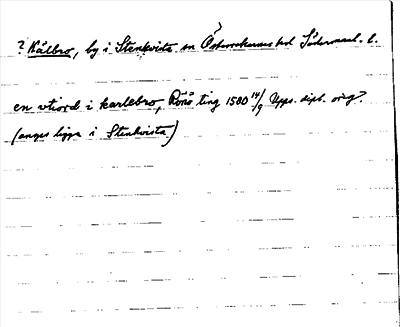 ? Kålbro, by i Stenkvista sn Österrekarnes hd Södermanl. l.
en vtiord i karlebro, Rönö ting 1580 14/9 Upps. dipl. orig?
(anges ligga i Stenkvista)